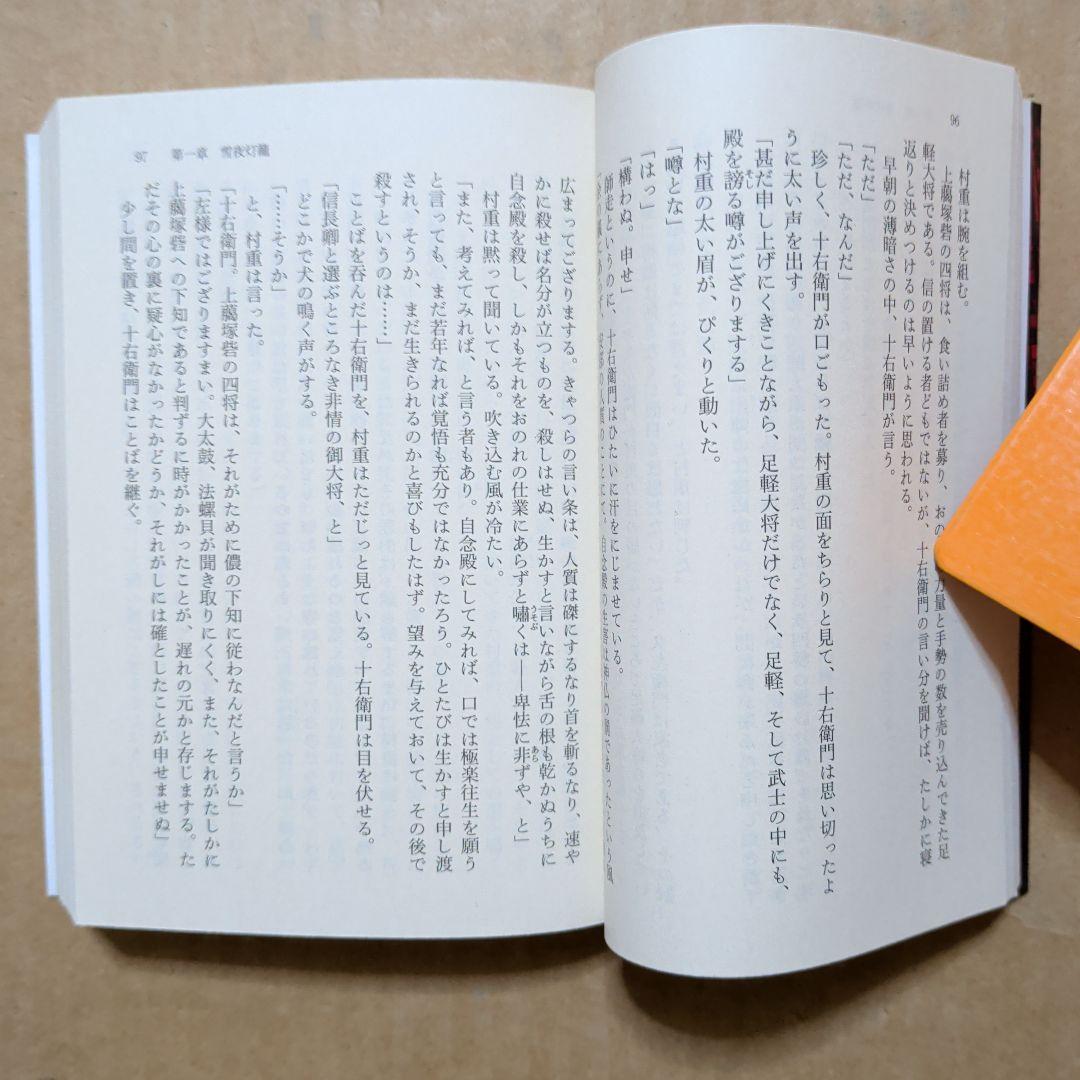 96
村重は腕を組む。
上﨟塚砦の四将は、食い詰め者を募り、おの 力量と手勢の数を売り込んできた足
軽大将である。信の置ける者どもではないが、十右衛門の言い分を聞けば、たしかに寝
返りと決めつけるのは早いように思われる。
早朝の薄暗さの中、十右衛門が言う。
「ただ」
「ただ、なんだ」
珍しく、十右衛門が口ごもった。村重の面をちらりと見て、十右衛門は思い切ったよ
うに太い声を出す。
「甚だ申し上げにくきことながら、足軽大将だけでなく、足軽、そして武士の中にも、
殿を謗る噂がござりまする」
村重の太い眉が、ぴくりと動いた。
「噂とな」
「はっ」
「構わぬ。申せ」
師走というのに、十右衛門はひたいに汗をにじませている。
人質のことにて。自念殿の生害は神仏の罰であったという風
広まってござりまする。きゃつらの言い条は、人質は磔にするなり首を斬るなり、速や
かに殺せば名分が立つものを、殺しはせぬ、生かすと言いながら舌の根も乾かぬうちに
自念殿を殺し、しかもそれをおのれの仕業にあらずと嘯くは――卑怯に非ずや、と」
村重は黙って聞いている。吹き込む風が冷たい。
「また、考えてみれば、と言う者もあり。自念殿にしてみれば、口では極楽往生を願う
と言っても、まだ若年なれば覚悟も充分ではなかったろう。ひとたびは生かすと申し渡
され、そうか、まだ生きられるのかと喜びもしたはず。望みを与えておいて、その後で
殺すというのは……」
ことばを呑んだ十右衛門を、村重はただじっと見ている。十右衛門は目を伏せる。
「信長卿と選ぶところなき非情の御大将、と」
どこかで犬の鳴く声がする。
「……そうか」
と、村重は言った。
「十右衛門。上﨟塚砦の四将は、それがために儂の下知に従わなんだと言うか」
「左様ではござりますまい。大太鼓、法螺貝が聞き取りにくく、また、それがたしかに
上﨟塚砦への下知であると判ずるに時がかかったことが、遅れの元かと存じまする。た
だその心の裏に疑心がなかったかどうか、それがしには確としたことが申せませぬ」
少し間を置き、十右衛門はことばを継ぐ。
97 第一章 雪夜灯籠